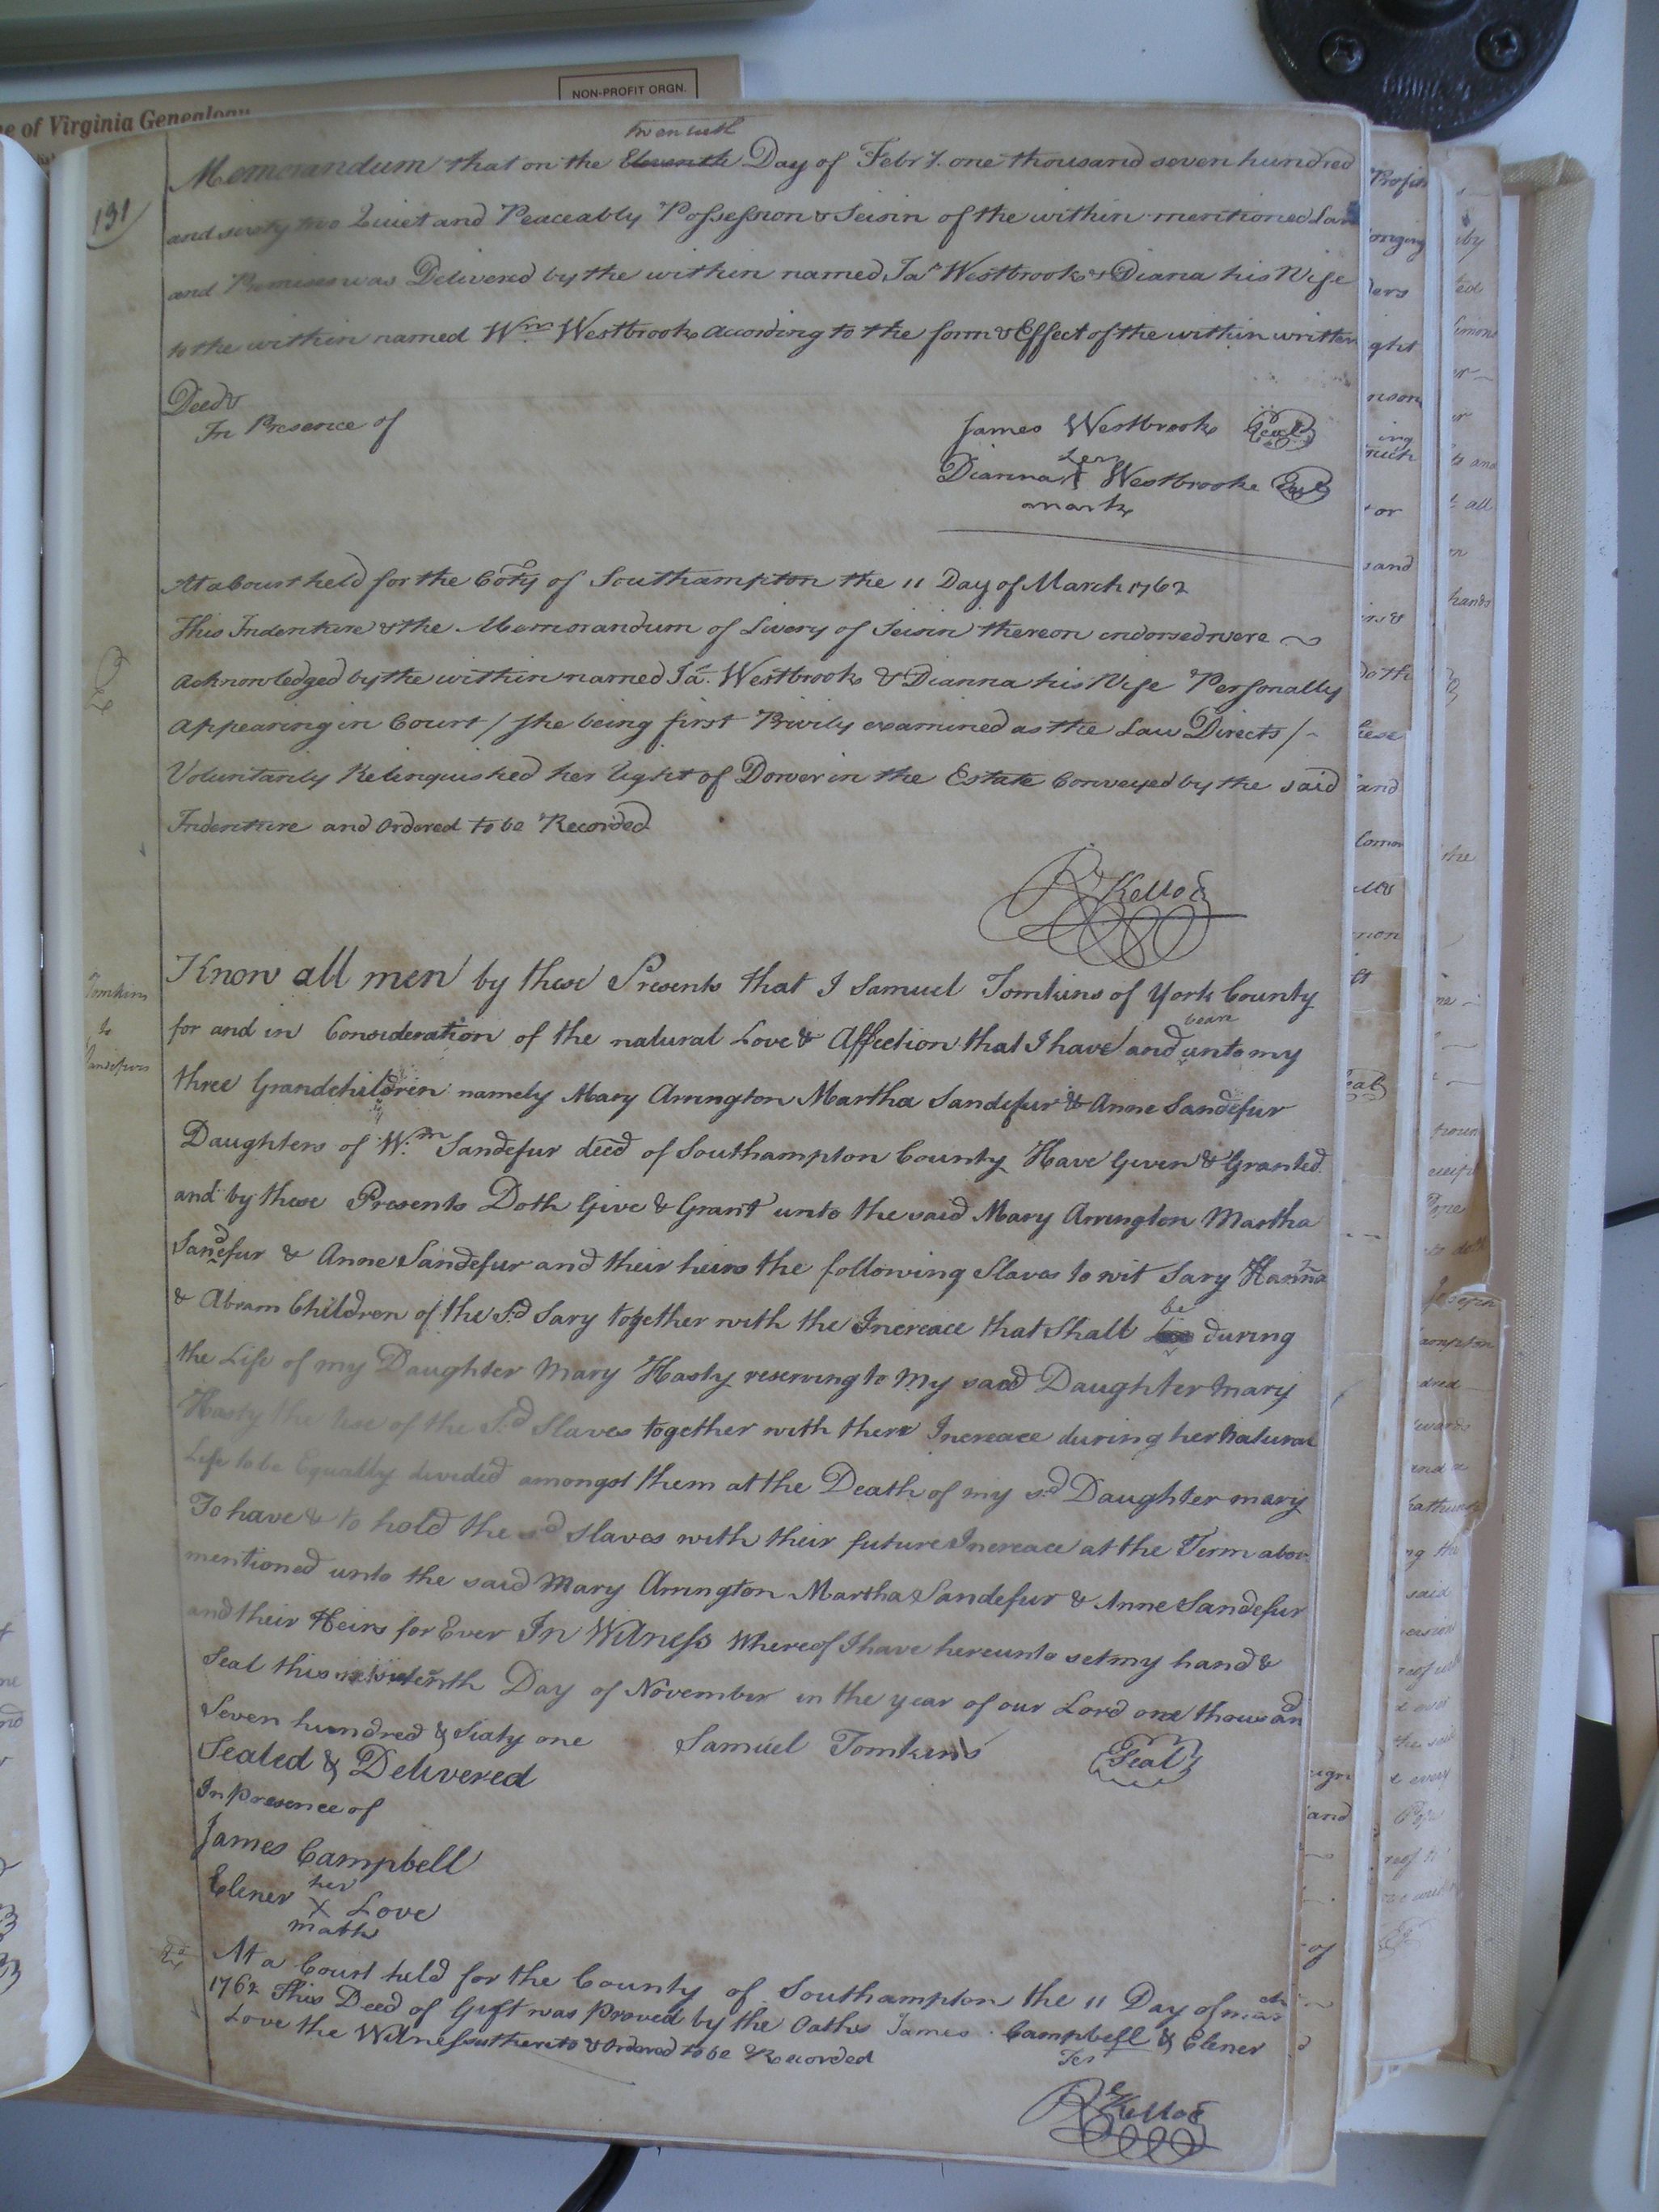 NON-PROFIT ORGN.
e of Virginia Genealogy
131
Memorandum that on the Eleventh Day of Febry. one thousand seven hundred
and sixty two Quiet and Peaceably Possession & Seisin of the within mentioned Lan
and Premises was Delivered by the within named Jas Westbrook & Diana his Wife
to the within named Wm. Westbrook according to the form & Effect of the within written
Deed &
In Presence of
James Westbrook Seal
her
Dianna Westbrooke Seal
mark
At a Court held for the Coty of Southampton the 11 Day of March 1762
This Indenture & the Memorandum of Livery of Seisin thereon endorsed were
acknowledged by the within named Ja. Westbrook & Dianna his Wife Personally
appearing in Court / she being first Privily examined as the Law Directs /
Voluntarily Relinquished her Right of Dower in the Estate Conveyed by the said
Indenture and Ordered to be Recorded
Rd Kello
Tomkins
to
Sandefurs
Know all men by these Presents that I Samuel Tomkins of York County
for and in Consideration of the natural Love & Affection that I have and bear unto my
three Grandchildren namely Mary Arrington Martha Sandefur & Anne Sandefur
Daughters of Wm. Sandefur decd of Southampton County Have Given & Granted
and by these Presents Doth Give & Grant unto the said Mary Arrington Martha
Sandefur & Anne Sandefur and their heirs the following Slaves to wit Sary Hanna
& Abram Children of the Sd Sary together with the Increace that Shall be during
the Life of my Daughter Mary Hasty reserving to My said Daughter Mary
Hasty the Use of the Sd Slaves together with there Increace during her Natural
Life to be Equally divided amongst them at the Death of my sd Daughter mary
To have & to hold the sd Slaves with their future Increace at the Term abov
mentioned unto the said Mary Arrington Martha Sandefur & Anne Sandefur
and their Heirs for Ever In Witness Whereof I have hereunto set my hand &
Seal this Day of November in the year of our Lord one thousand
Seven hundred & Sixty one Samuel Tomkins Seal
Sealed & Delivered
In presence of
James Campbell
her
Elener X Love
mark
At a Court held for the County of Southampton the 11 Day of March
1762 This Deed of Gift was proved by the Oaths James Campbell & Elener
Love the Witnesses thereto & Ordered to be Recorded
Tes
Rd Kello